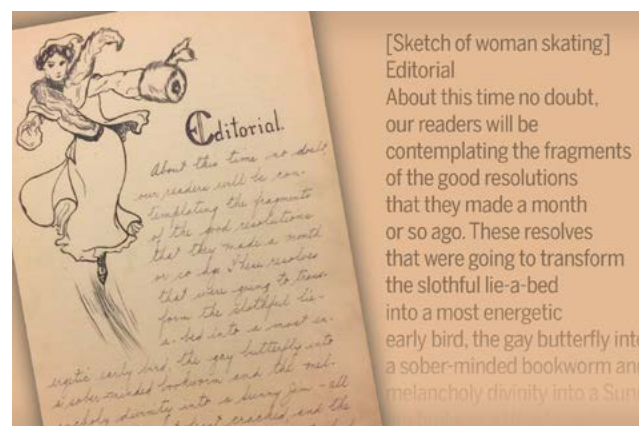 Editorial.
About this time no doubt
our readers will be con-
templating the fragments
of the good resolutions
that they made a month
or so ago. These resolves
that were going to trans-
form the slothful lie-
a-bed into a most en-
ergetic early bird, the gay butterfly into
a sober-minded bookworm and the mel-
ancholy divinity into a Sunny Jim - all
cracked, and the
[Sketch of woman skating]
Editorial
About this time no doubt,
our readers will be
contemplating the fragments
of the good resolutions
that they made a month
or so ago. These resolves
that were going to transform
the slothful lie-a-bed
into a most energetic
early bird, the gay butterfly into
a sober-minded bookworm and
melancholy divinity into a Sun